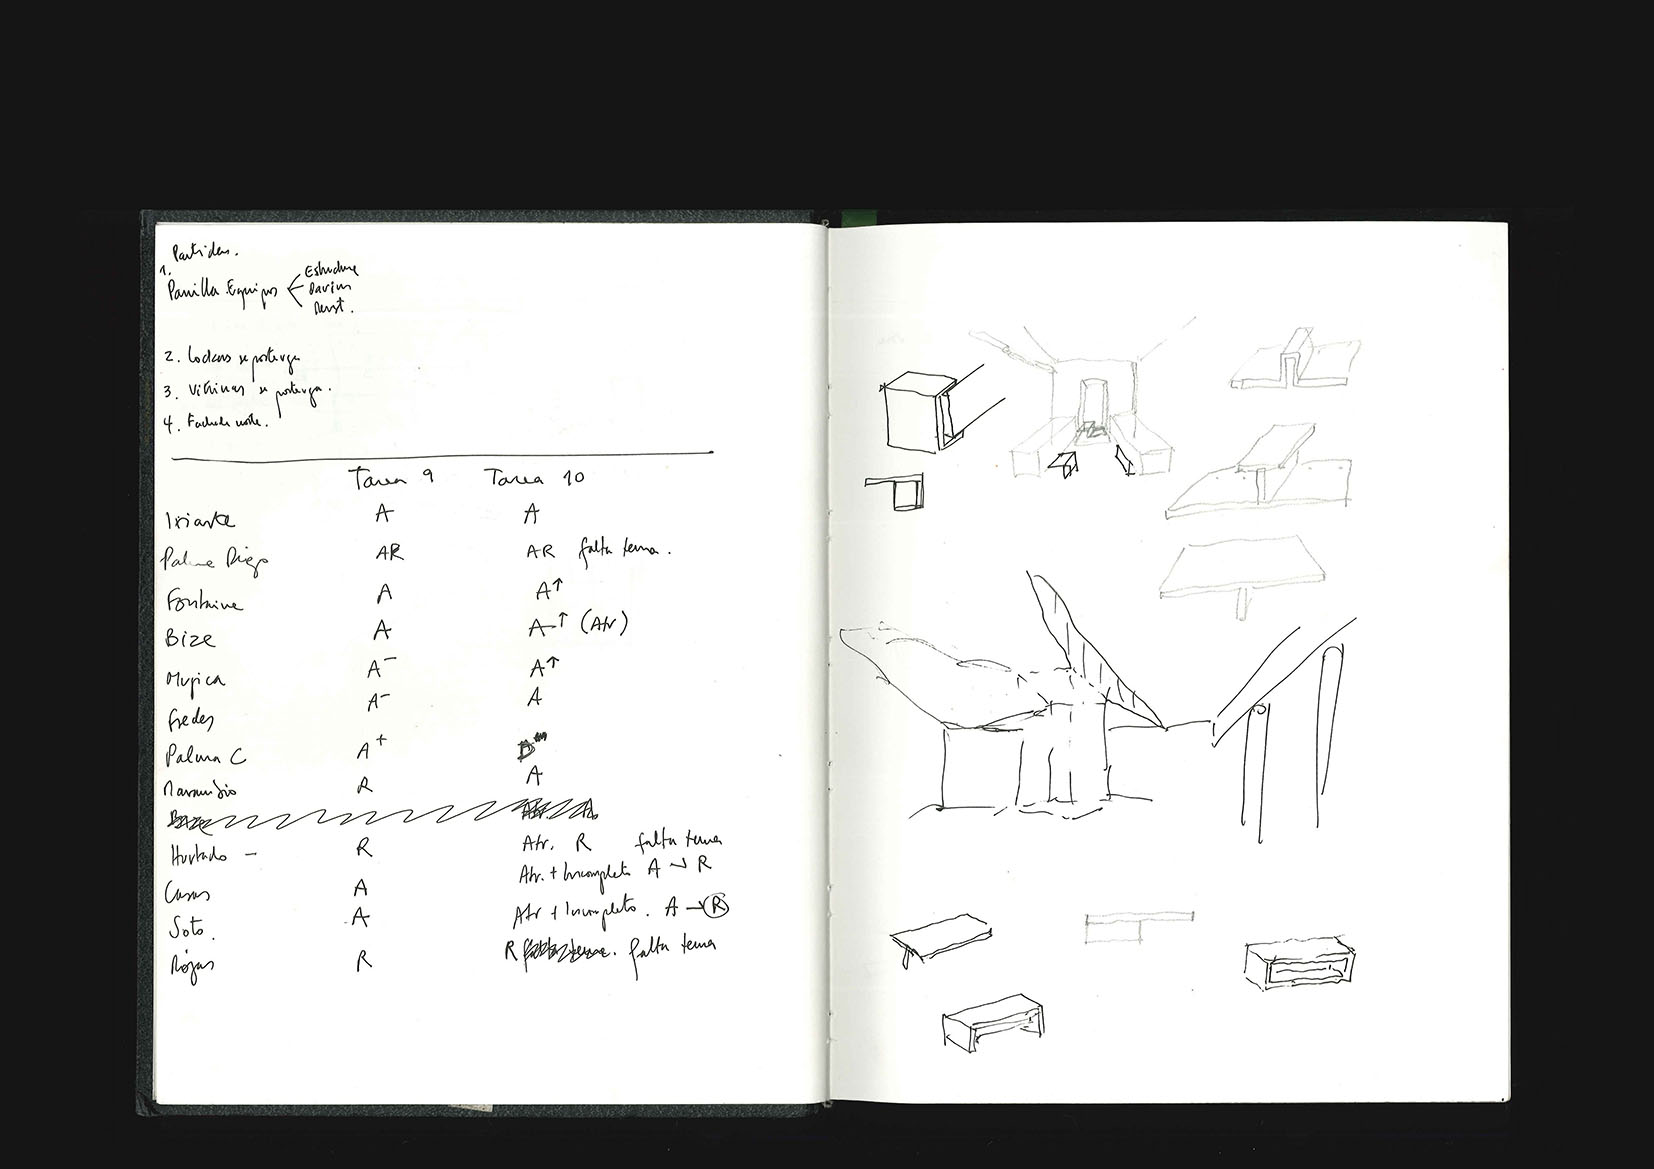 Partidas.
1.
Parrilla Equipos
2. Lockers se posterga
3. Vitrinas se posterga.
4. Fachada norte.
Tarea 9 Tarea 10
Iriarte A A
Palma Diego AR AR falta tema.
Fontaine A A↑
Bize A A↑ (Atr)
Mujica A- A↑
Fredes A- A
Palma C A+
Naranjo R A
Hurtado - R Atr. R falta tema
Casas A Atr. + Incompleto A → R
Soto. A Atr + Incompleto. A → R
Rojas R R falta tema